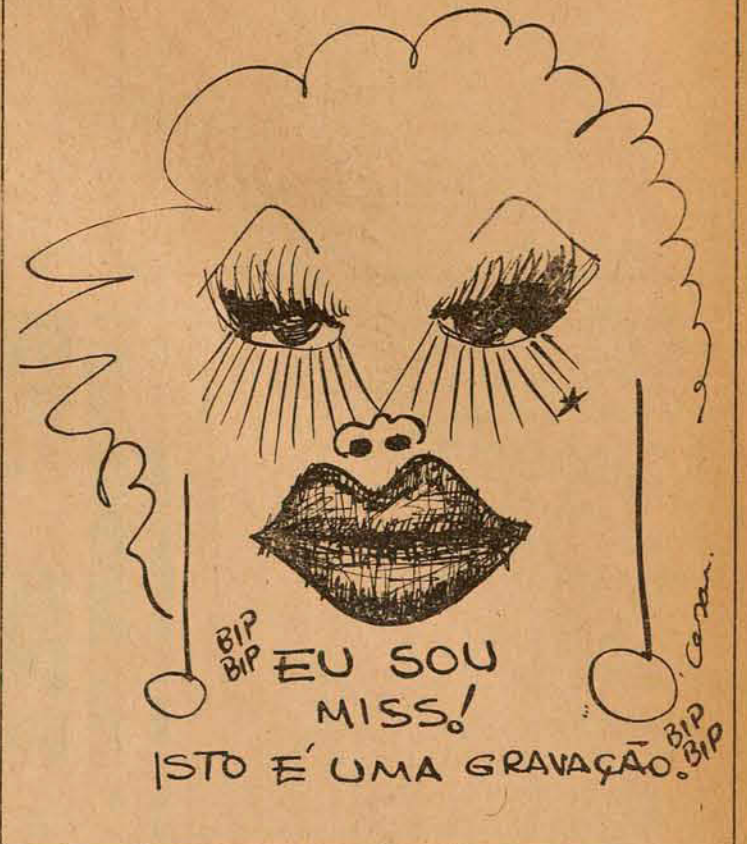 BIP
BIP
EU SOU
MISS!
ISTO É UMA GRAVAÇÃO.
BIP
BIP
Cesar.